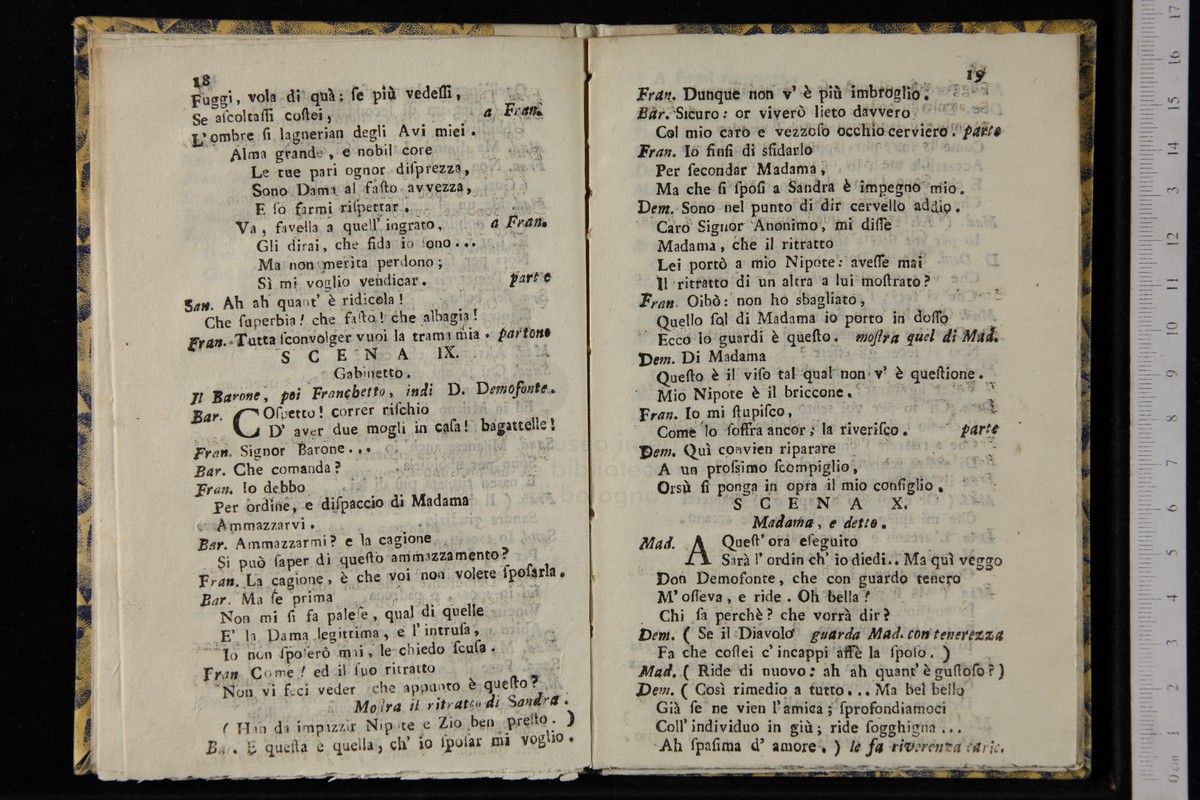 18
Fuggi, vola di quà; ſe più vedeſſi,
Se aſcoltaſſi coſtei, a Fran.
L'ombre ſi lagnerian degli Avi miei.
Alma grande, e nobil core
Le tue pari ognor diſprezza,
Sono Dama al faſto avvezza,
E ſo farmi riſpettar.
Va, favella a quell' ingrato, a Fran.
Gli dirai, che fida io ſono...
Ma non merita perdono;
Sì mi voglio vendicar. parte
San. Ah ah quant' è ridicola!
Che ſuperbia! che faſto! che albagia!
Fran. Tutta ſconvolger vuoi la trama mia. partono
SCENA IX.
Gabinetto.
Il Barone, poi Franchetto, indi D. Demofonte.
Bar. COſpetto! correr riſchio
D' aver due mogli in caſa! bagattelle!
Fran. Signor Barone...
Bar. Che comanda?
Fran. Io debbo
Per ordine, e diſpaccio di Madama
Ammazzarvi.
Bar. Ammazzarmi? e la cagione
Si può ſaper di queſto ammazzamento?
Fran. La cagione, è che voi non volete ſpoſarla.
Bar. Ma ſe prima
Non mi ſi fa paleſe, qual di quelle
E' la Dama legittima, e l'intruſa,
Io non ſpoſerò mai, le chiedo ſcuſa.
Fran Come! ed il ſuo ritratto
Non vi feci veder che appunto è queſto?
Moſtra il ritratto di Sandra.
( Han da impazzir Nipote e Zio ben preſto. )
Bar. E queſta e quella, ch' io ſpoſar mi voglio.
19
Fran. Dunque non v' è più imbroglio.
Bar. Sicuro: or viverò lieto davvero
Col mio caro e vezzoſo occhio cerviero. parte
Fran. Io finſi di sfidarlo
Per ſecondar Madama,
Ma che ſi ſpoſi a Sandra è impegno mio.
Dem. Sono nel punto di dir cervello addio.
Caro Signor Anonimo, mi diſſe
Madama, che il ritratto
Lei portò a mio Nipote: aveſſe mai
Il ritratto di un altra a lui moſtrato?
Fran Oibò: non ho sbagliato,
Quello ſol di Madama io porto in doſſo
Ecco lo guardi è queſto. moſtra quel di Mad.
Dem. Di Madama
Queſto è il viſo tal qual non v' è queſtione.
Mio Nipote è il briccone.
Fran. Io mi ſtupiſco,
Come lo ſoffra ancor; la riveriſco. parte
Dem. Quì convien riparare
A un proſsimo ſcompiglio,
Orsù ſi ponga in opra il mio conſiglio.
SCENA X.
Madama, e detto.
Mad. A Queſt' ora eſeguito
Sarà l' ordin ch' io diedi.. Ma quì veggo
Don Demofonte, che con guardo tenero
M' oſſeva, e ride. Oh bella!
Chi ſa perchè? che vorrà dir?
Dem. ( Se il Diavolo guarda Mad. con tenerezza
Fa che coſtei c' incappi affè la ſpoſo. )
Mad. ( Ride di nuovo: ah ah quant' è guſtoſo?)
Dem. ( Così rimedio a tutto... Ma bel bello
Già ſe ne vien l'amica; ſprofondiamoci
Coll' individuo in giù; ride ſogghigna...
Ah ſpaſima d' amore. ) le fa riverenza caric.